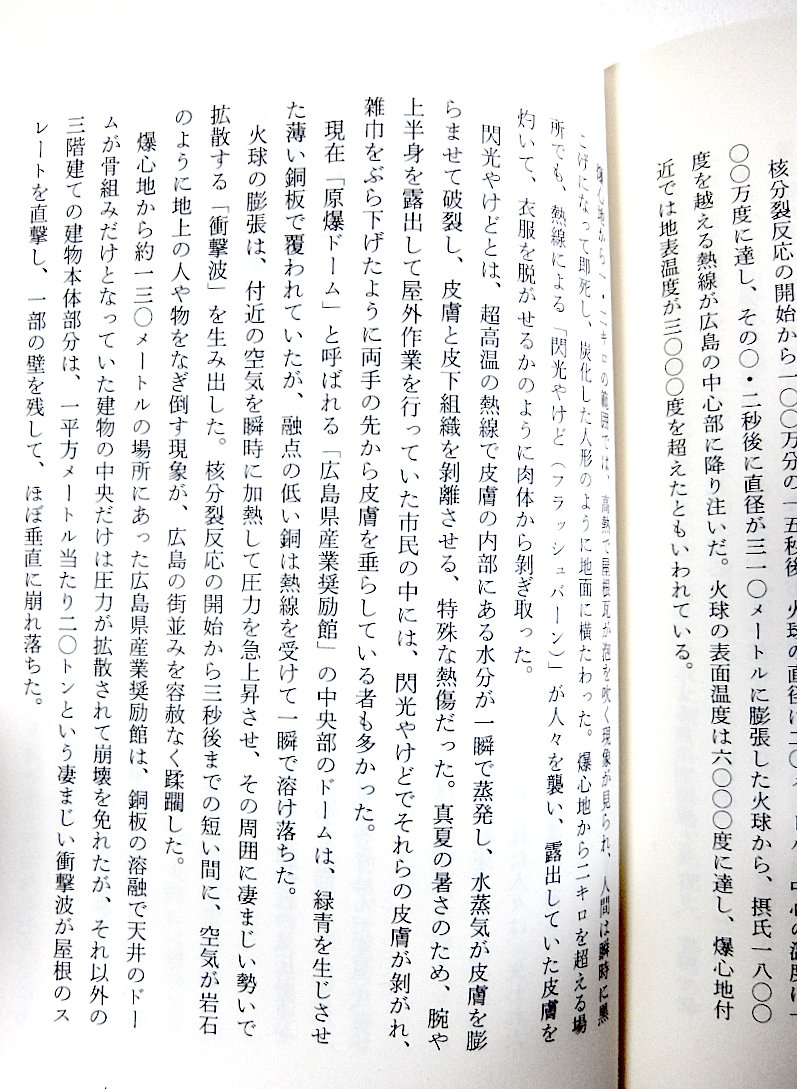 核分裂反応の開始から一〇〇万分の一五秒後、火球の直径は二〇メートル、中心の温度は一
〇〇万度に達し、その〇・二秒後に直径が三一〇メートルに膨張した火球から、摂氏一八〇〇
度を越える熱線が広島の中心部に降り注いだ。火球の表面温度は六〇〇〇度に達し、爆心地付
近では地表温度が三〇〇〇度を超えたともいわれている。
爆心地から一・二キロの範囲では、高熱で屋根瓦が泡を吹く現象が見られ、人間は瞬時に黒
こげになって即死し、炭化した人形のように地面に横たわった。爆心地から二キロを超える場
所でも、熱線による「閃光やけど（フラッシュバーン）」が人々を襲い、露出していた皮膚を
灼いて、衣服を脱がせるかのように肉体から剝ぎ取った。
閃光やけどとは、超高温の熱線で皮膚の内部にある水分が一瞬で蒸発し、水蒸気が皮膚を膨
らませて破裂し、皮膚と皮下組織を剝離させる、特殊な熱傷だった。真夏の暑さのため、腕や
上半身を露出して屋外作業を行っていた市民の中には、閃光やけどでそれらの皮膚が剝がれ、
雑巾をぶら下げたように両手の先から皮膚を垂らしている者も多かった。
現在「原爆ドーム」と呼ばれる「広島県産業奨励館」の中央部のドームは、緑青を生じさせ
た薄い銅板で覆われていたが、融点の低い銅は熱線を受けて一瞬で溶け落ちた。
火球の膨張は、付近の空気を瞬時に加熱して圧力を急上昇させ、その周囲に凄まじい勢いで
拡散する「衝撃波」を生み出した。核分裂反応の開始から三秒後までの短い間に、空気が岩石
のように地上の人や物をなぎ倒す現象が、広島の街並みを容赦なく蹂躙した。
爆心地から約一三〇メートルの場所にあった広島県産業奨励館は、銅板の溶融で天井のドー
ムが骨組みだけとなっていた建物の中央だけは圧力が拡散されて崩壊を免れたが、それ以外の
三階建ての建物本体部分は、一平方メートル当たり二〇トンという凄まじい衝撃波が屋根のス
レートを直撃し、一部の壁を残して、ほぼ垂直に崩れ落ちた。